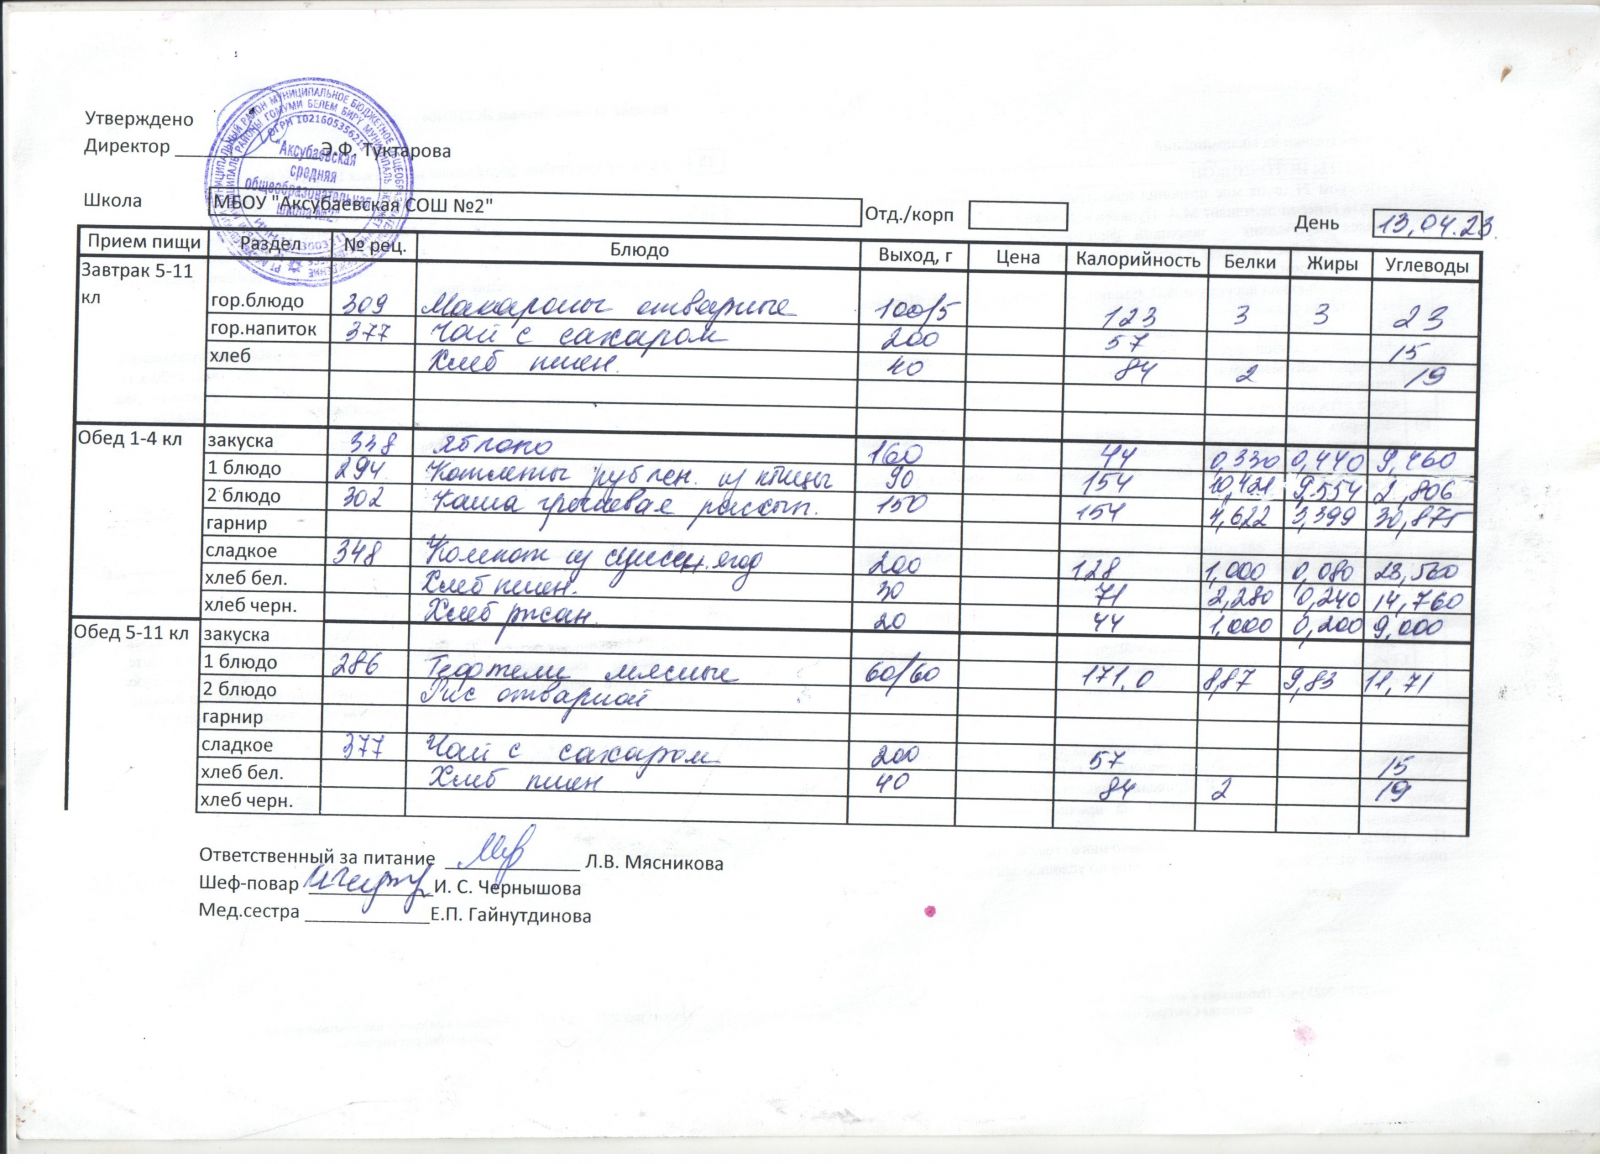 Утверждено
Директор Э.Ф. Туктарова
"Аксубаевская
средняя
общеобразовательная
школа №2"
Школа МБОУ "Аксубаевская СОШ №2" Отд./корп День 13.04.23.
Прием пищи Раздел № рец. Блюдо Выход, г Цена Калорийность Белки Жиры Углеводы
Завтрак 5-11 кл гор.блюдо 309 Макароны отварные 100/5 123 3 3 23
гор.напиток 377 Чай с сахаром 200 57 15
хлеб Хлеб пшен. 40 84 2 19
Обед 1-4 кл закуска 338 яблоко 160 44 0,330 0,440 9,460
1 блюдо 294 Котлеты рублен. из птицы 90 154 10,421 9,554 2,806
2 блюдо 302 Каша гречневая рассып. 150 154 4,622 3,399 30,875
гарнир
сладкое 348 Компот из сушен. ягод 200 128 1,000 0,080 23,560
хлеб бел. Хлеб пшен. 30 71 2,280 0,240 14,760
хлеб черн. Хлеб ржан. 20 44 1,000 0,200 9,000
Обед 5-11 кл закуска
1 блюдо 286 Тефтели мясные 60/60 171,0 8,87 9,83 11,71
2 блюдо Рис отварной
гарнир
сладкое 377 Чай с сахаром 200 57 15
хлеб бел. Хлеб пшен 40 84 2 19
хлеб черн.
Ответственный за питание Л.В. Мясникова
Шеф-повар И. С. Чернышова
Мед.сестра Е.П. Гайнутдинова